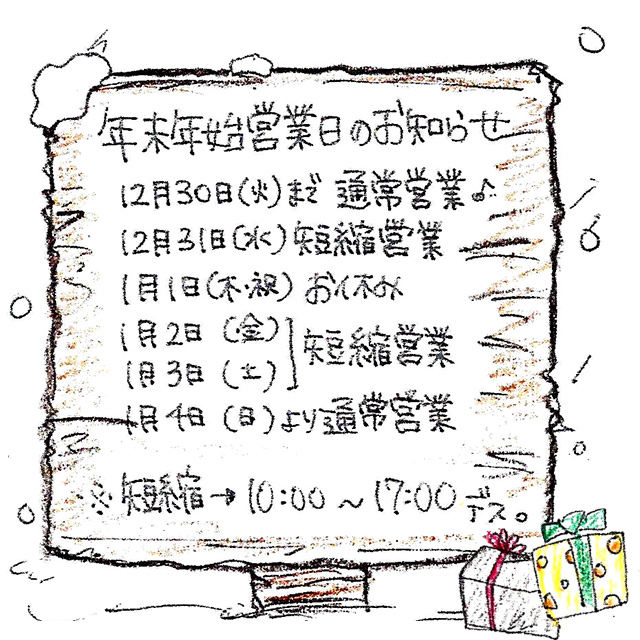 年末年始営業日のお知らせ
12月30日(火)まで 通常営業♪
12月31日(水)短縮営業
1月1日(木・祝) お休み
1月2日 (金)
1月3日 (土)
短縮営業
1月4日 (日)より通常営業
※短縮→10:00~17:00デス。